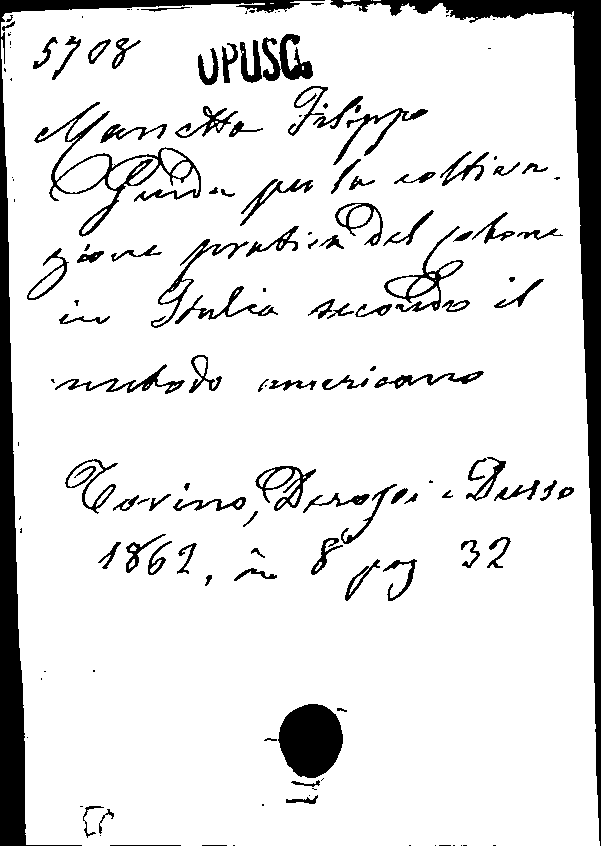 5708 OPUSC.
Manetta Filippo
Guida per la coltiva-
zione pratica del cotone
in Italia secondo il
metodo americano
Torino, Derossi e Dusso
1862, in 8° pag 32